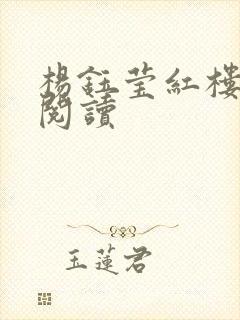 楊鈺瑩紅樓
閱讀
玉蓮君